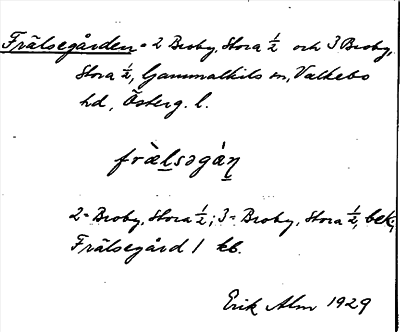 Frälsegården = 2 Broby, Stora ½ och 3 Broby,
Stora ½, Gammalkils sn, Valkebo
hd, Österg. l.
frä̀lsəgàṇ
2 = Broby, Stora ½; 3 = Broby, Stora ½, bek.
Frälsegård 1 kb.
Erik Alm 1929